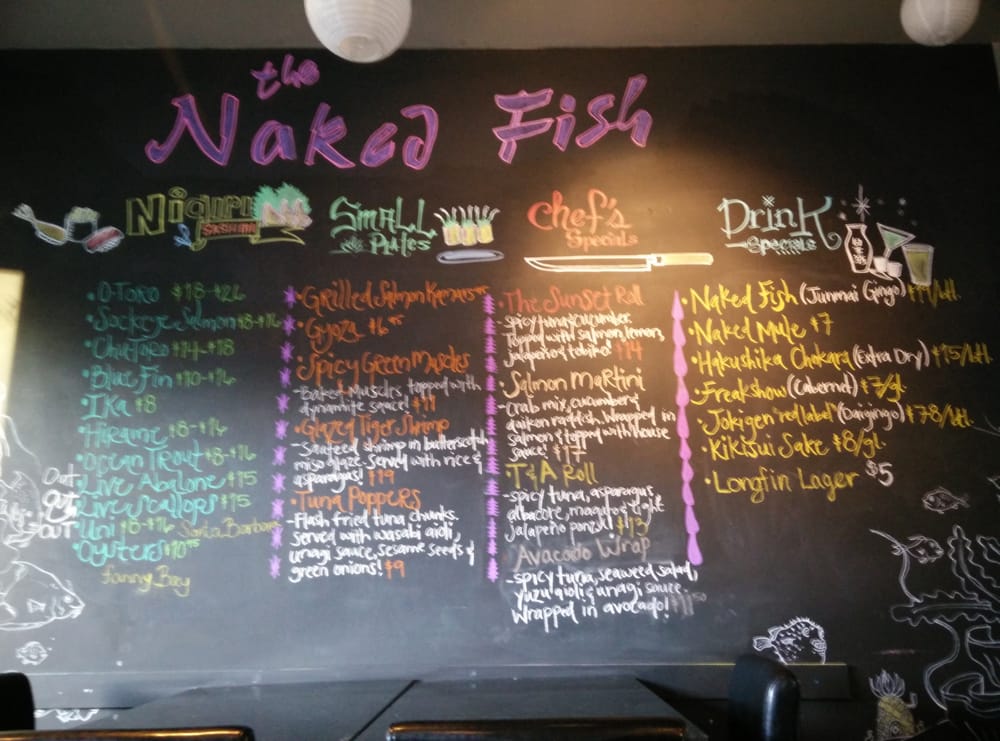 the
Naked Fish
Nigiri
& Sashimi
O-Toro $18-$26
Sockeye Salmon $8-$16
ChuToro $14-$18
Blue Fin $10-$16
Ika $8
Hirame $8-$16
Ocean Trout $8-$16
Live Abalone $15
Live Scallops $15
Uni $8-$16 Santa Barbara
Oysters $10
Fanny Bay
Out
Out
Small
Plates
Grilled Salmon Kamas
Gyoza $6
Spicy Green Muscles
-Baked Muscles topped with
dynamite sauce! $11
Glazed Tiger Shrimp
-Sauteed shrimp in butterscotch
miso glaze. Served with rice &
asparagus! $19
Tuna Poppers
-Flash fried tuna chunks.
Served with wasabi aioli,
unagi sauce, sesame seeds &
green onions! $9
Chef's
Specials
The Sunset Roll
-spicy tuna & cucumber
topped with salmon, lemon,
jalapeño & tobiko! $14
Salmon Martini
-Crab mix, cucumber &
daikon raddish. Wrapped in
salmon & topped with house
sauce! $17
T&A Roll
-spicy tuna, asparagus,
albacore,
jalapeño ponzu! $13
Avacado Wrap
-spicy tuna, seaweed salad,
yuzu aioli & unagi sauce.
Wrapped in avocado! $11.50
Drink
Specials
Naked Fish (Junmai Gingo)
Naked Mule $7
Hakushika Chokara (Extra Dry) $15/btl.
Freakshow (Cabernet) $7/gl.
Jokigen "red label" (Daigingo) $78/btl.
Kikisui Sake $8/gl.
Longfin Lager $5